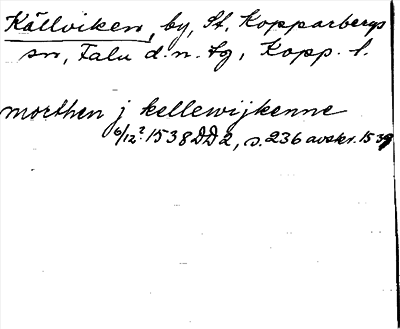 Källviken, by, St. Kopparbergs
sn, Falu d.n. tg, Kopp. l.
morthen j kellewijkenne
6/12? 1538 DD 2, s. 236 avskr. 1539